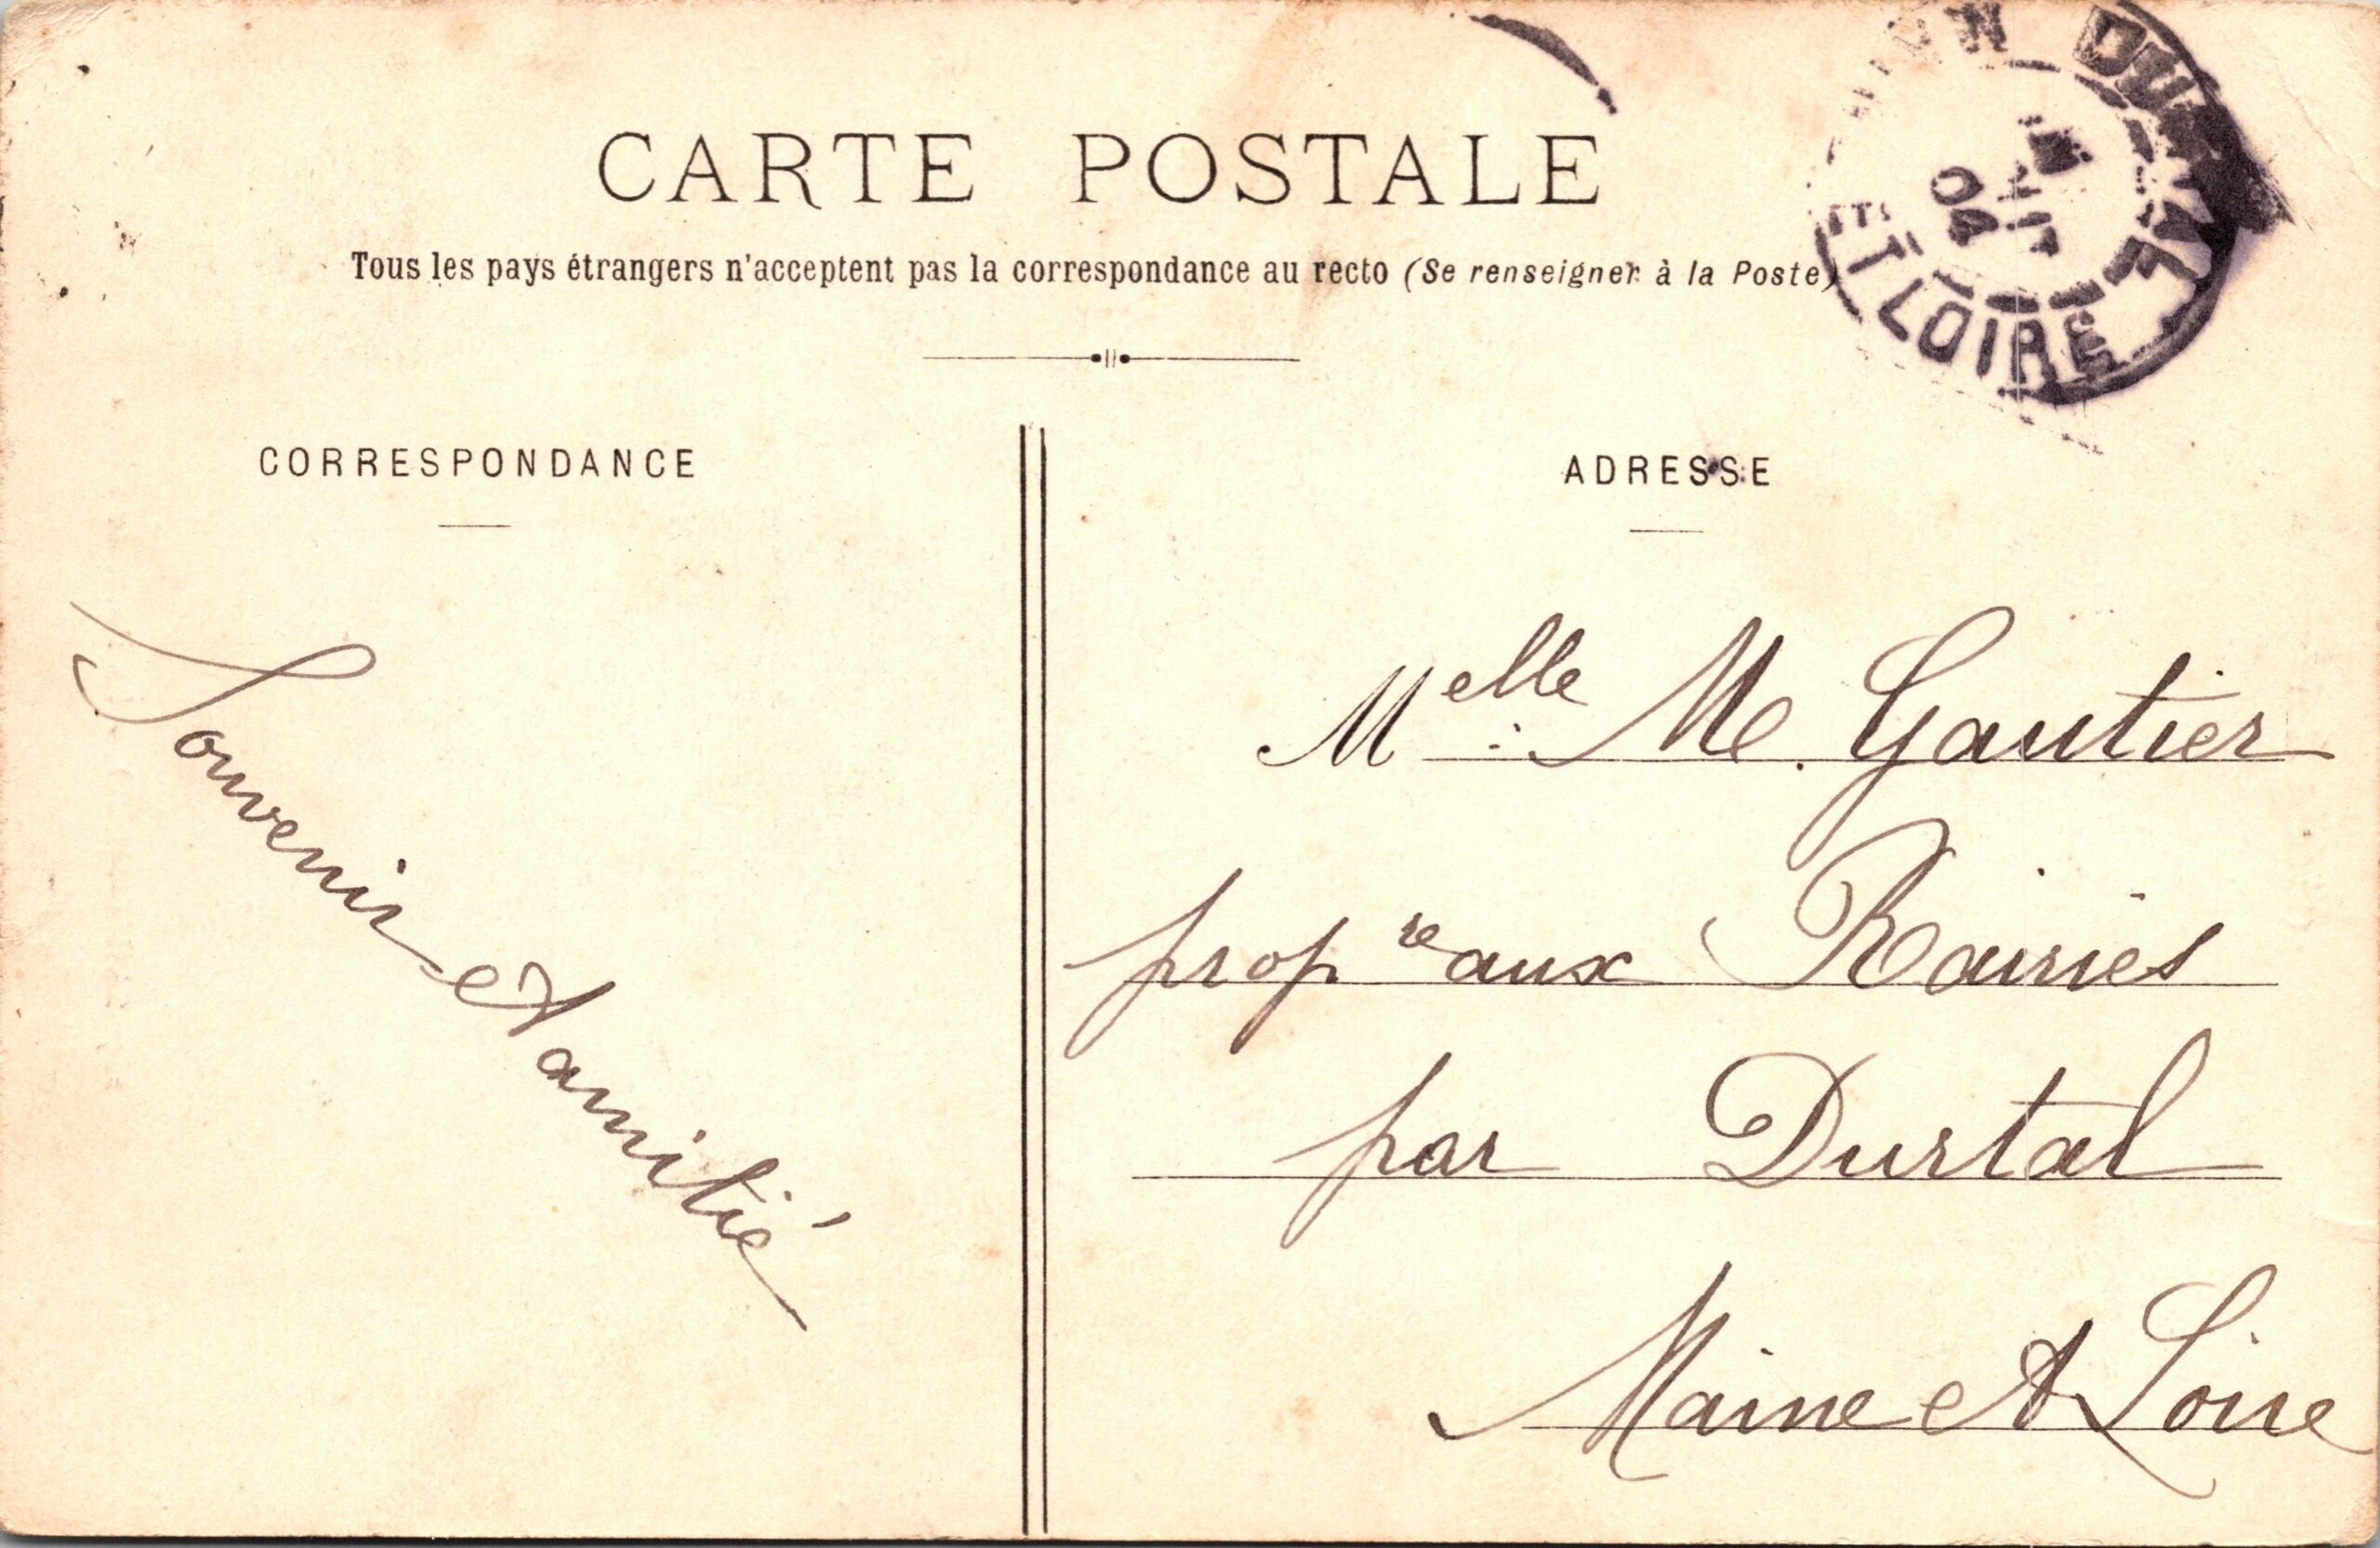 CARTE POSTALE
Tous les pays étrangers n'acceptent pas la correspondance au recto (Se renseigner à la Poste)
CORRESPONDANCE
ADRESSE
Souvenir et amitié
Melle M. Gautier
propre aux Rairies
par Durtal
Maine et Loire
04
ET LOIRE